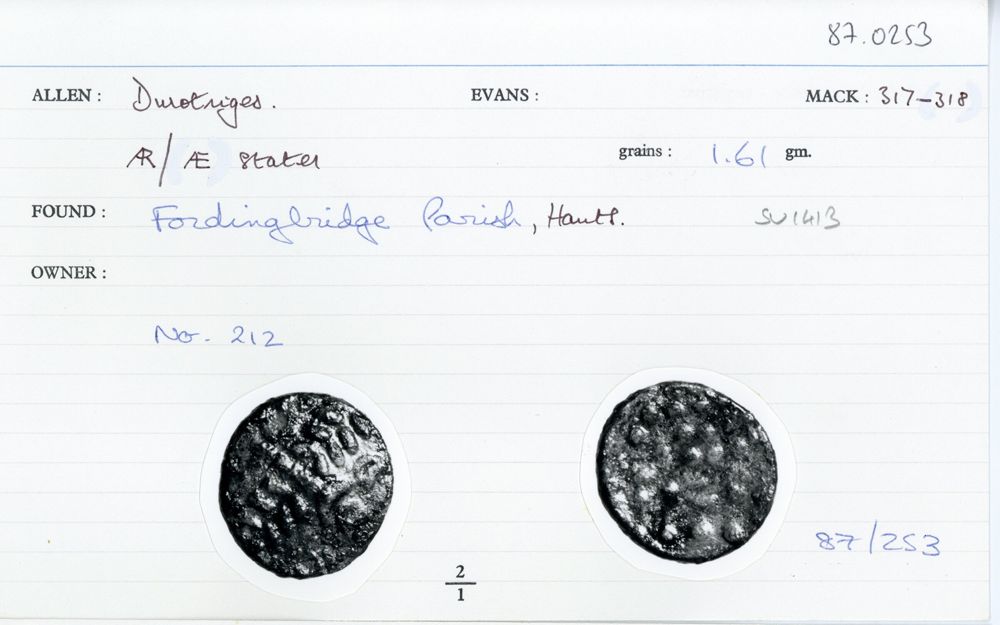 87.0253
ALLEN : Durotriges. EVANS : MACK : 317-318
ÆR/Æ Stater grains : 1.61 gm.
FOUND : Fordingbridge Parish, Hants. SU1413
OWNER :
No. 212
87/253
2
1